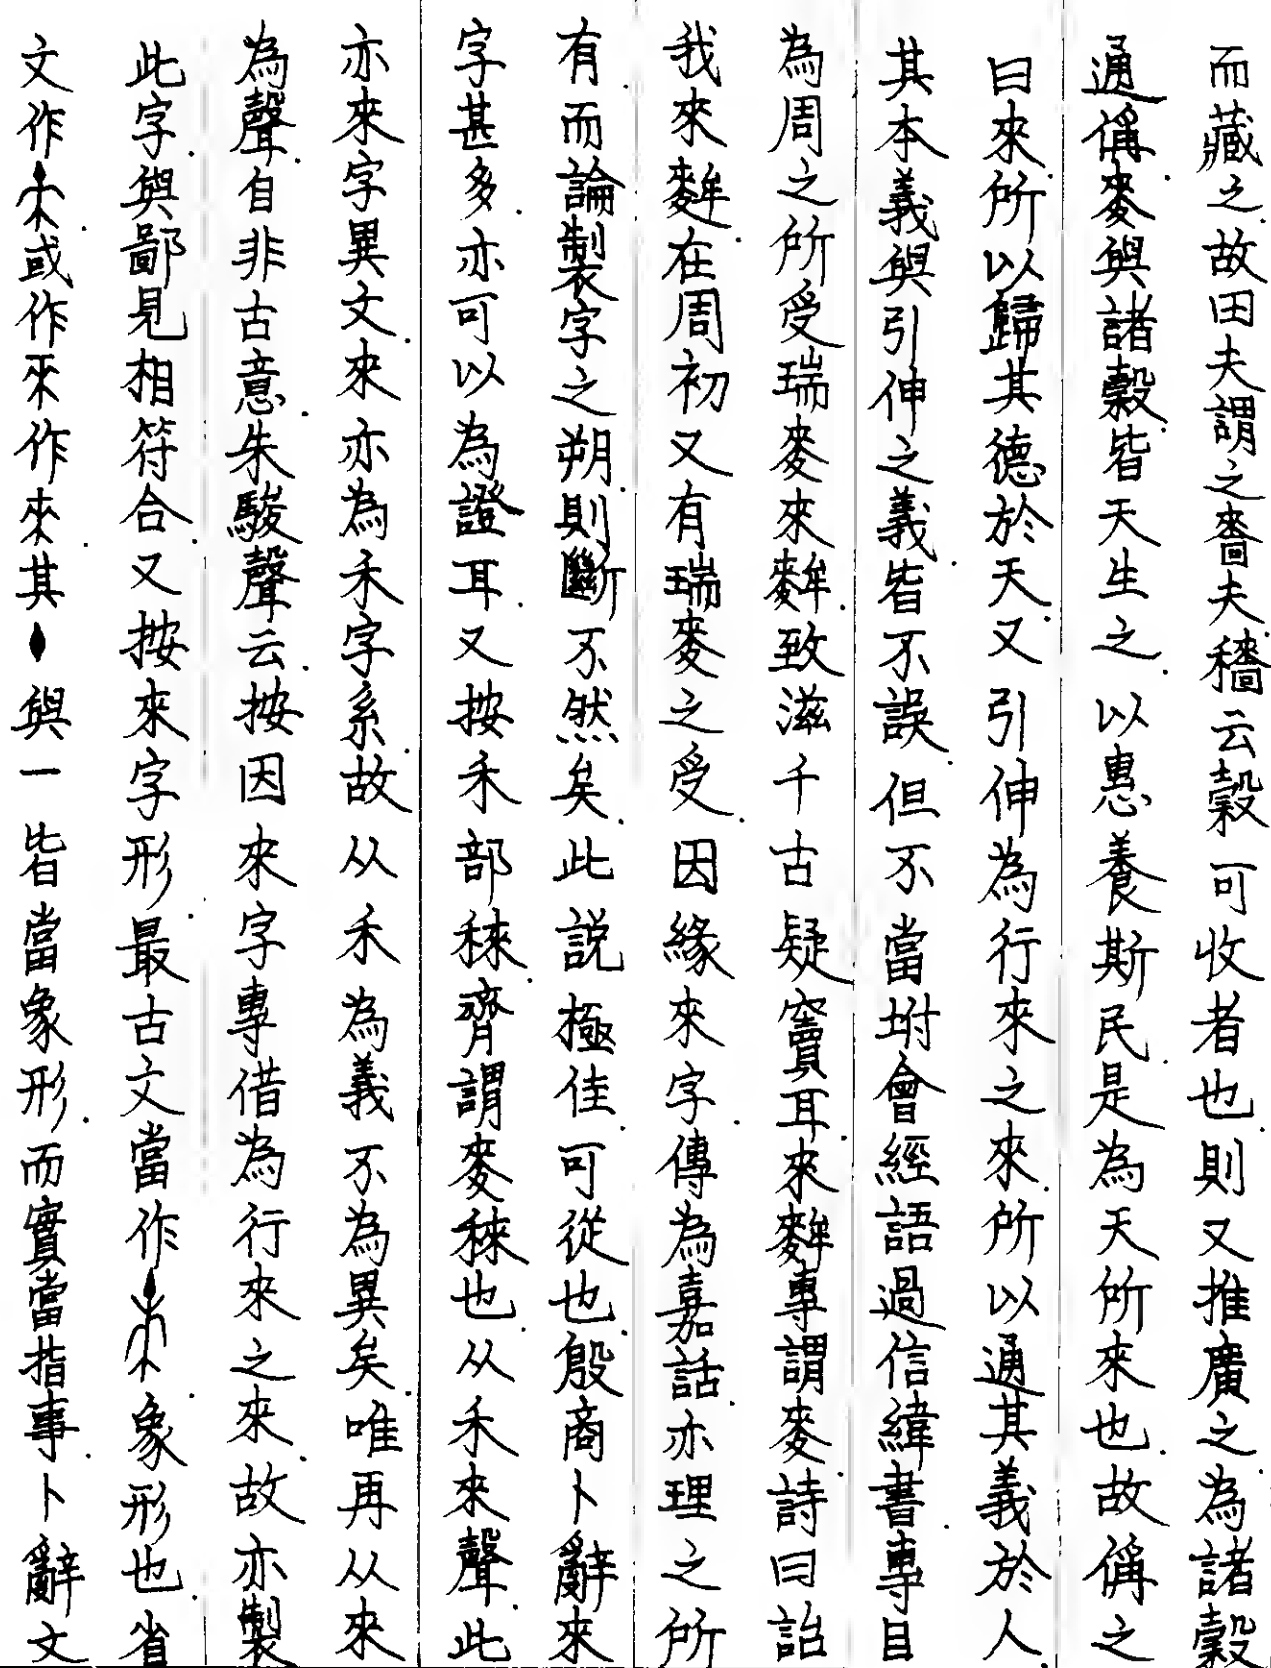 而藏之故田夫謂之嗇夫穡云穀可收者也則又推廣之為諸穀
通偁麥與諸穀皆天生之以惠養斯民是為天所來也故偁之
曰來所以歸其德於天又引伸為行來之來所以通其義於人
其本義與引伸之義皆不誤但不當坿會經語過信緯書專目
為周之所受瑞麥來麰致滋千古疑竇耳來麰專謂麥詩曰詒
我來麰在周初又有瑞麥之受因緣來字傳為嘉話亦理之所
有而論製字之朔則斷不然矣此說極佳可從也殷商卜辭來
字甚多亦可以為證耳又按禾部秾齊謂麥秾也从禾來聲此
亦來字異文來亦為禾字系故从禾為義不為異矣唯再从來
為聲自非古意朱駿聲云按因來字專借為行來之來故亦製
此字與鄙見相符合又按來字形最古文當作象形也省
文作或作來作來其與一皆當象形而實當指事卜辭文